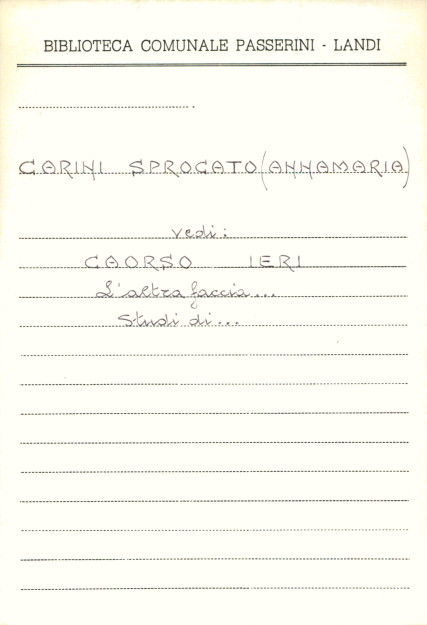 BIBLIOTECA COMUNALE PASSERINI - LANDI
CARINI SPROCATO (ANNAMARIA)
vedi:
CAORSO IERI
L'altra faccia...
Studi di...